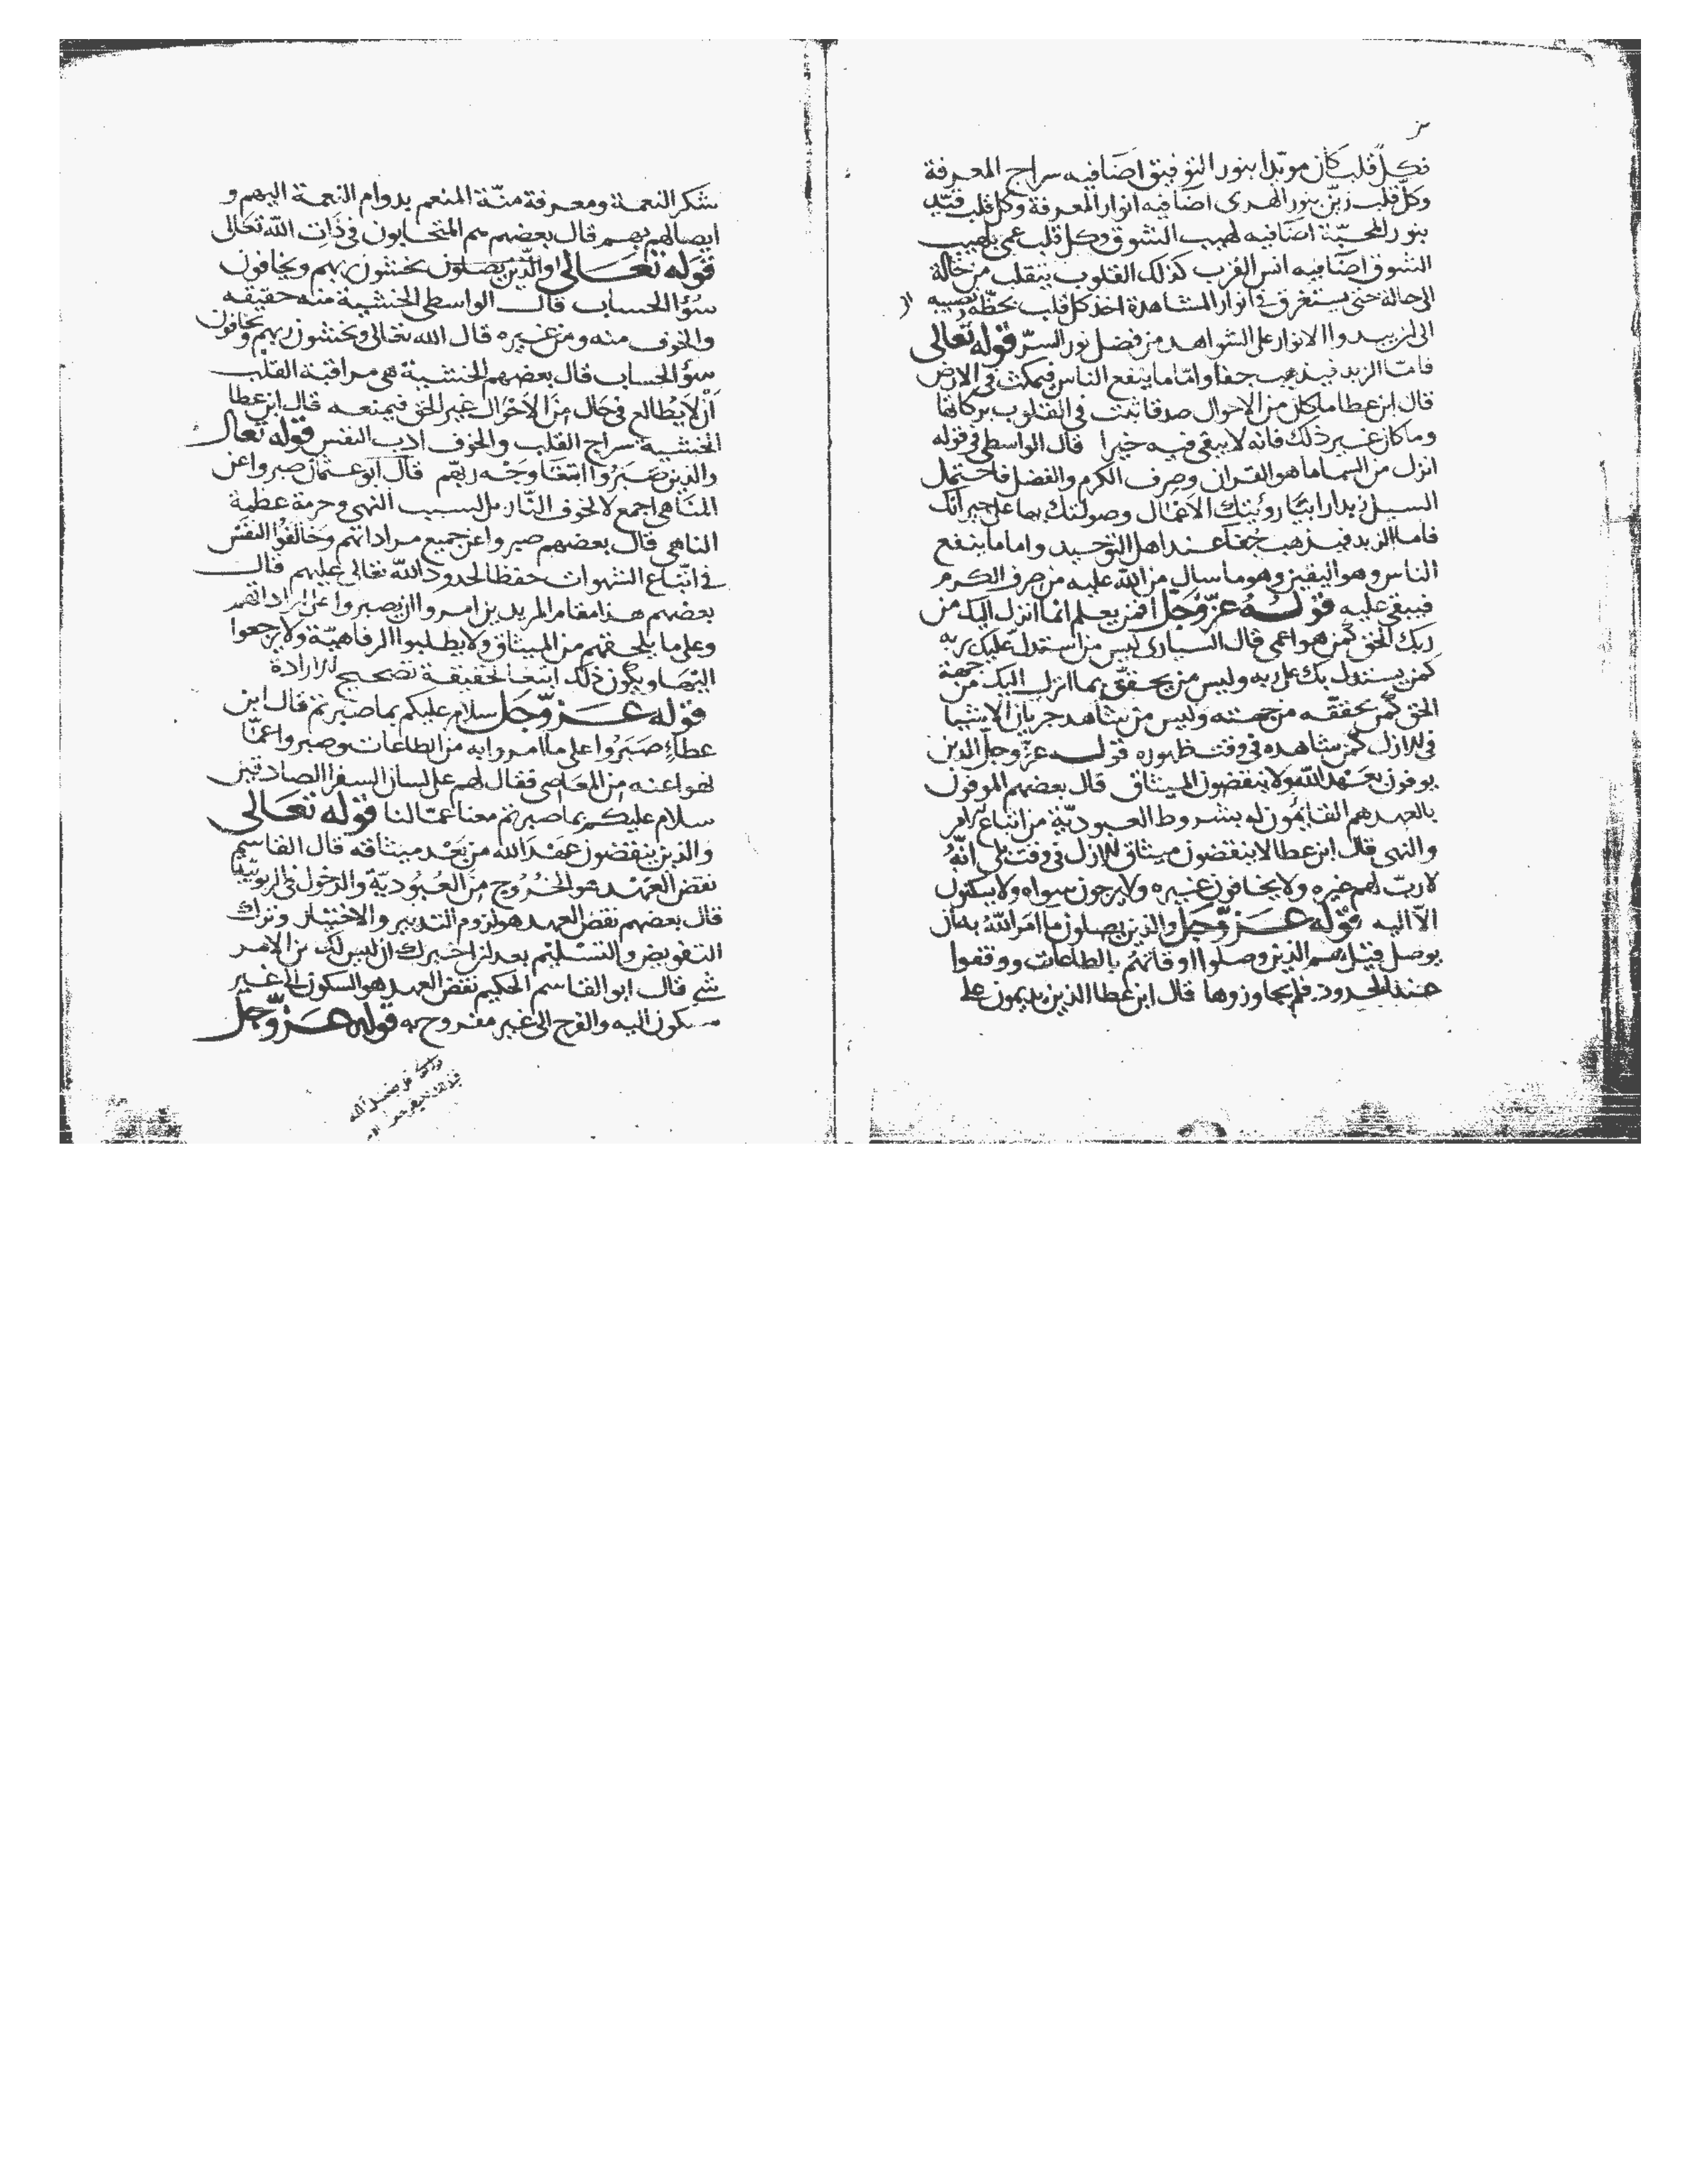 فكل قلب كان مويدا بنور التوفيق اضا فيه سراج المعرفة
وكل قلب زين بنور الهدى اضا فيه انوار المعرفة وكل قلب قيد
بنور المحبّة اضا فيه لهيب الشوق وكل قلب عمى بلهيب
الشوق اضا فيه انس القرب كذلك القلوب يتقلب من حالة
الى حالة حتى يستغرق في انوار المشاهدة اخذ كل قلب بحظّه ونصيبه
الى ان يبدوا الانوار على الشواهد من فضل نور السرّ قوله تعالى
فامّا الزبد فيذهب جفا وامّا ما ينفع الناس فيمكث في الارض
قال ابن عطا ما كان من الاحوال صدقا ثبت في القلوب بركاتها
وما كان غير ذلك فانه لا يبقى فيه خيرا قال الواسطى في قوله
انزل من السما ما هو القران وصرف الكرم والفضل فاحتمل
السيل زبدا رابيًا رويتك الاعمال وصولتك بها على
فاما الزبد فيذهب جُفا عند اهل التوحيد واما ما ينفع
الناس وهو اليقين وهو ما سال من الله عليه من صرف الكرم
فيبقى عليه قوله عزّ وجلّ افمن يعلم انما انزل اليك من
ربك الحق كمن هو اعمى قال السيارى ليس من استدلّ عليك بربه
كمن يستدل بك على ربه وليس من يحقق بما انزل اليك من جهة
الحق كمن يحققه من جهته وليس من يشاهد جريان الاشيا
في الازل كمن شاهده في وقت ظهوره قوله عزّ وجلّ الذين
يوفون بعَهد الله ولا ينقضون الميثاق قال بعضهم الموفون
بالعهد هم القايمُون له بشروط العبوديّة من اتباع الامر
والنهى قال ابن عطا لا ينقضون ميثاق الازل في وقت بلى انّهُ
لا ربّ لهم غيره ولا يخافون غيره ولا يرجون سواه ولا يسكنون
الاّ اليه قوله عزّ وجلّ والذين يصلون ما امَر اللهُ به ان
يوصل قيل هم الذين وصلوا اوقاتهُم بالطاعات ووقفوا
عند الحدود فلم يجاوزوها قال ابن عطا الذين يديمون على
شكر النعمة ومعرفة منّة المنعم بدوام النعمة اليهم و
ايصالهم بهم قال بعضهم هم المتحابون في ذات الله تعالى
قوله تعالى والّذين يصلون يخشون ربهم ويخافون
سُوؤ الحساب قال الواسطى الخشية منه حقيقه
والخوف منه ومن غيره قال الله تعالى ويخشون ربهم ويخافون
سوؤ الحساب قال بعضهم الخشية هي مراقبة القلب
اَنْ لا يُطالع في حَال مِنَ الاَحْوال غير الحق فيمنعه قال ابن عطا
الخشية سراج القلب والخوف ادب النفس قوله تعالى
والذين صَبَرُوا ابتغَا وجْه ربّهم قال ابو عثمان صبروا عن
المنَاهى اجمع لا لخوف النّار بل لسبب النهى وحرمة عظمة
الناهى قال بعضهم صبروا عن جميع مراداتهم وخالفوُا النفْس
في اتّباع الشهوات حفظا لحدود الله تعالى عليهم قال
بعضهم هذا مقام المريدين امروا ان يصبروا على اراداتهم
وعلى ما يلحقهم من الميثاق ولا يطلبوا الرفاهيّة ولا يرجعوا
اليها ويكون ذلك ابتغا لحقيقة تصحيح الارادة
قوله عزّ وجلّ سلام عليكم بما صبرتم قال ابن
عطاءِ صَبَرُوا على ما امروا به من الطاعات وصبروا عمّا
نهوا عنه من المعاصى فقال لهم على لسان السفرا الصادقين
سلام عليكم بما صبرتم معنا عمّا لنا قوله تعالى
والذين ينقضون عهْدَ الله من بَعْد ميثاقه قال القاسم
نقض العَهْد هو الخُرُوج مِنَ العُبُوديّة والدخول في الربوبيّة
قال بعضهم نقض العهد هو لزوم التدبير والاختيار وترك
التفويض والتسْليم بعد ان اخبرك ان ليس لك من الامر
شي قال ابو القاسم الحكيم نقض العهد هو السكون الى غير
مسكون اليه والفرح الى غير مفروح به قوله عزّ وجلّ